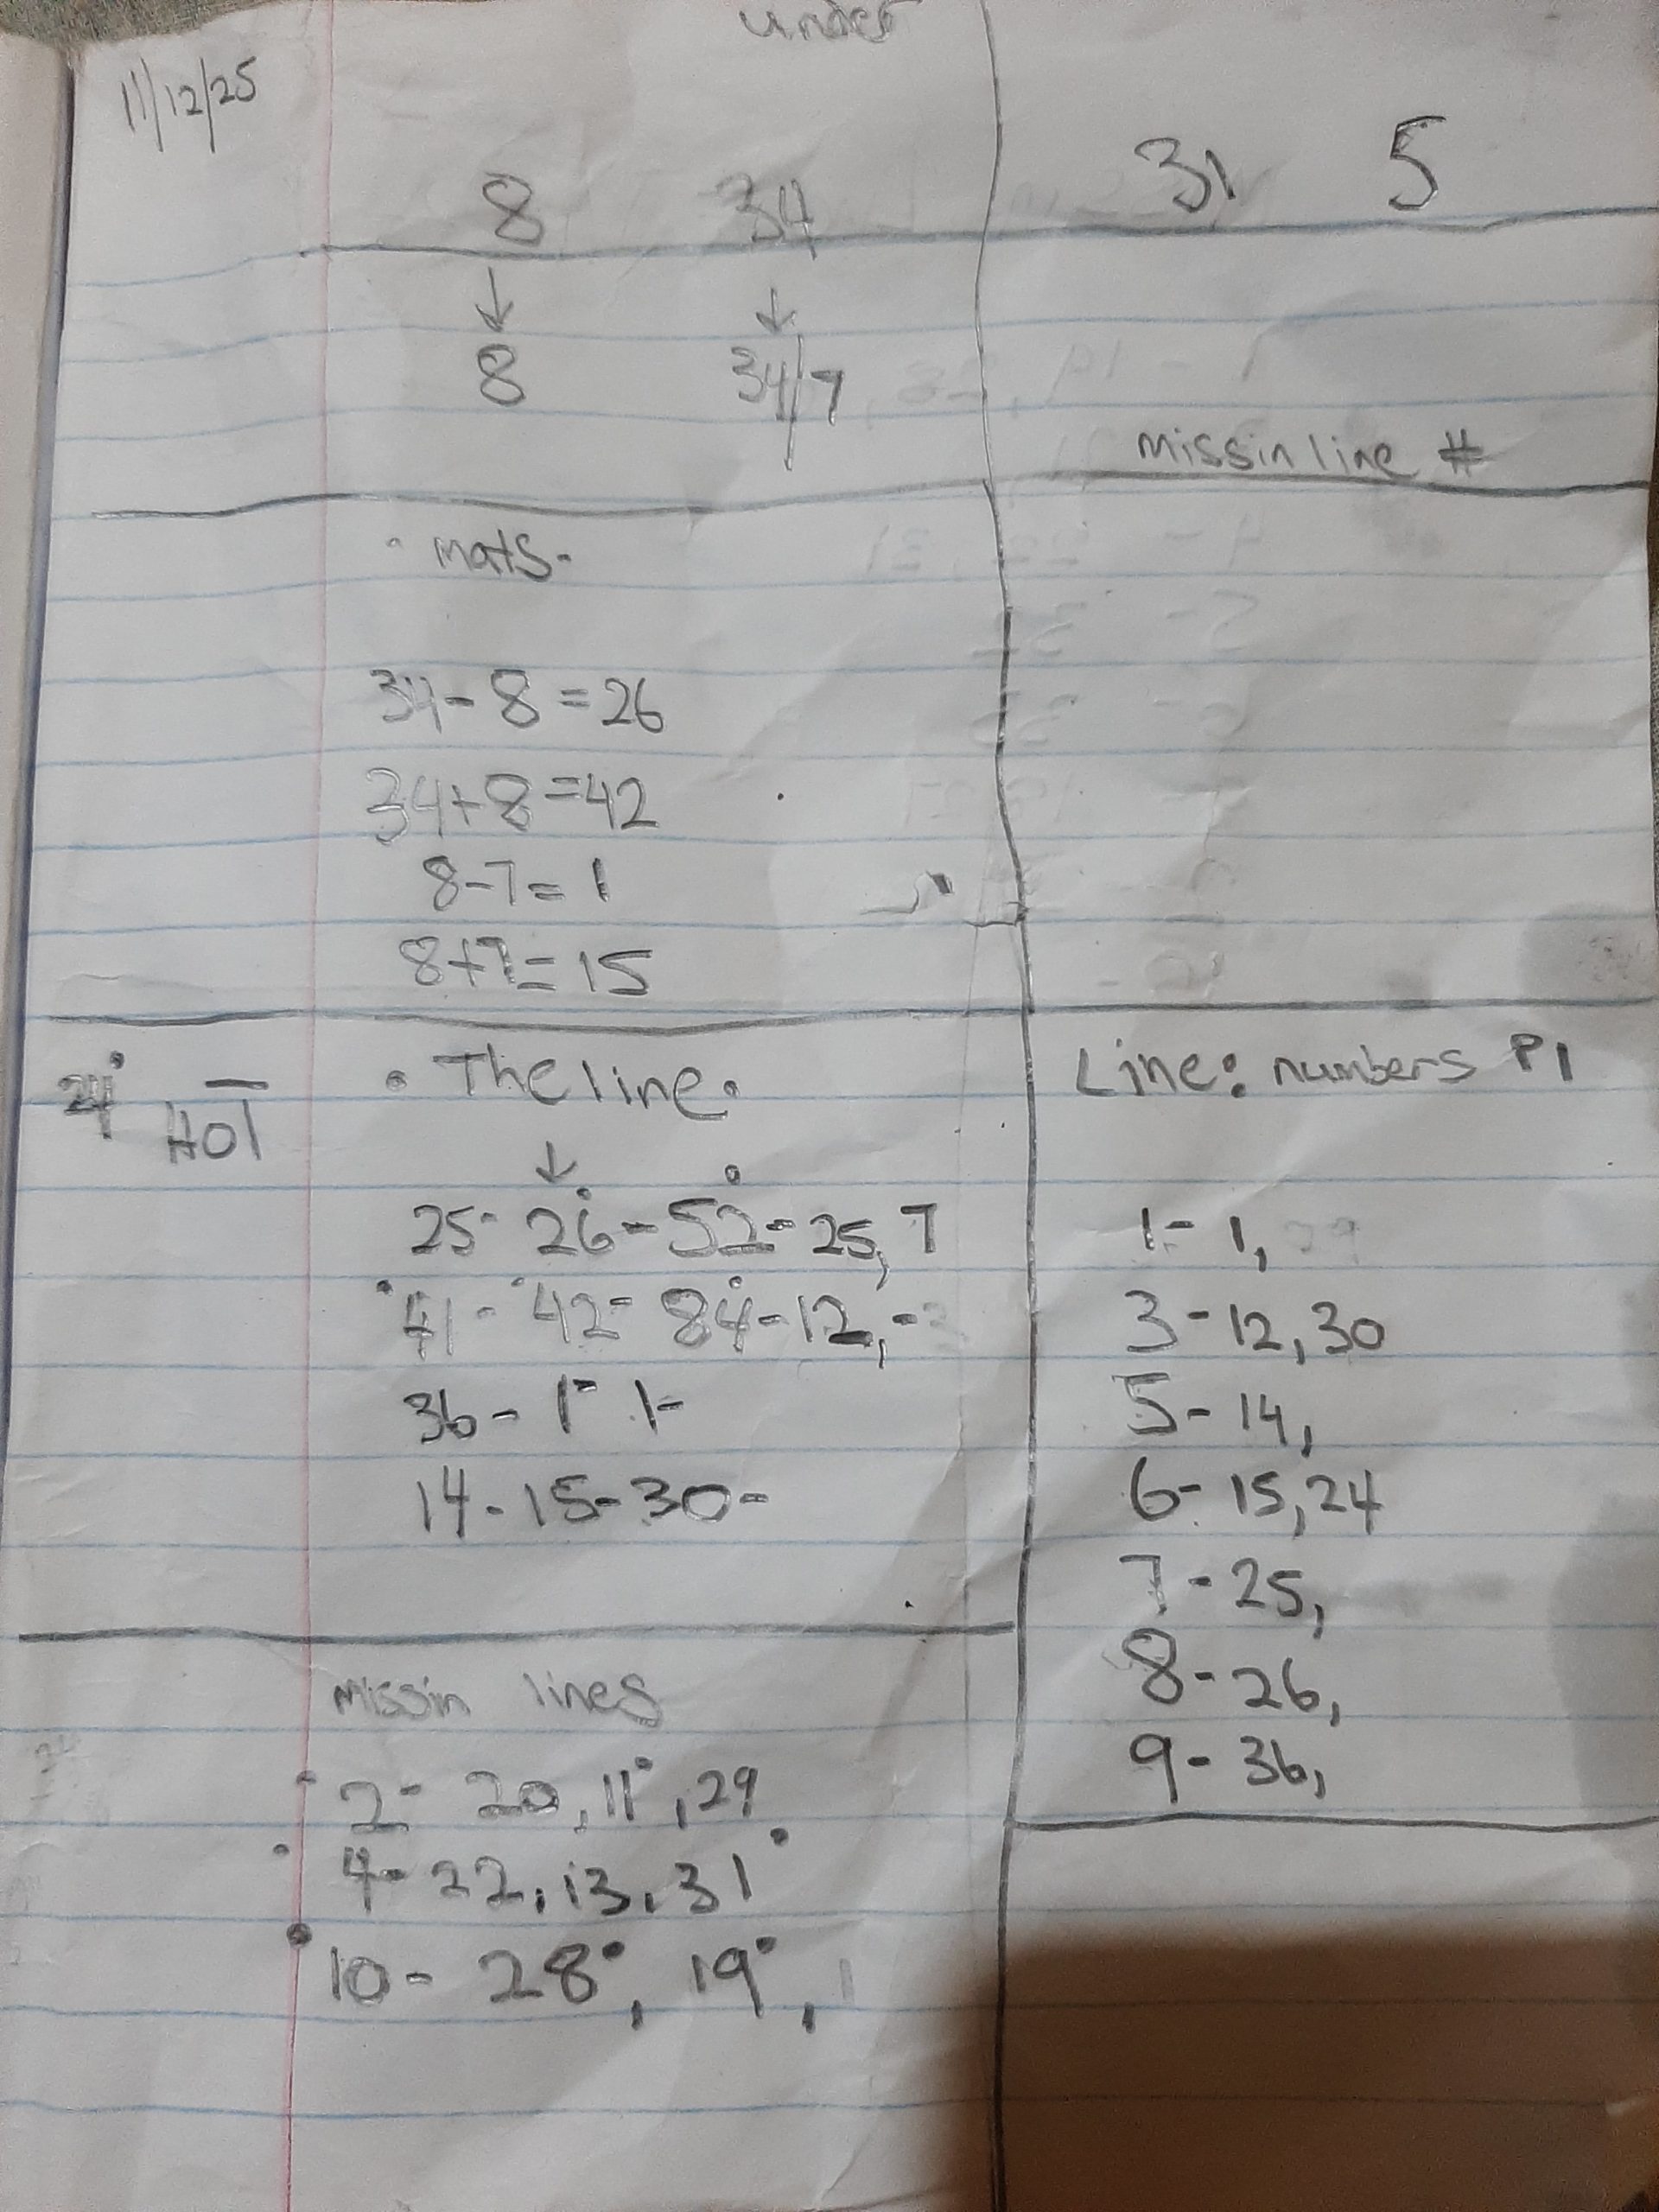 under
11/12/25
8 34
31 5
↓ ↓
8 34/7
missin line #
· mats-
34-8=26
34+8=42
8-7=1
8+7=15
24° HOT
• The line •
↓
25- 26- 52- 25, 7
41- 42- 84-12,-
36- 1- 1-
14-15-30-
Line: numbers P1
1- 1, 29
3-12,30
5-14,
6-15,24
7-25,
8-26,
9-36,
missin lines
2- 20, 11, 29
4-22, 13, 31
10- 28, 19, 1